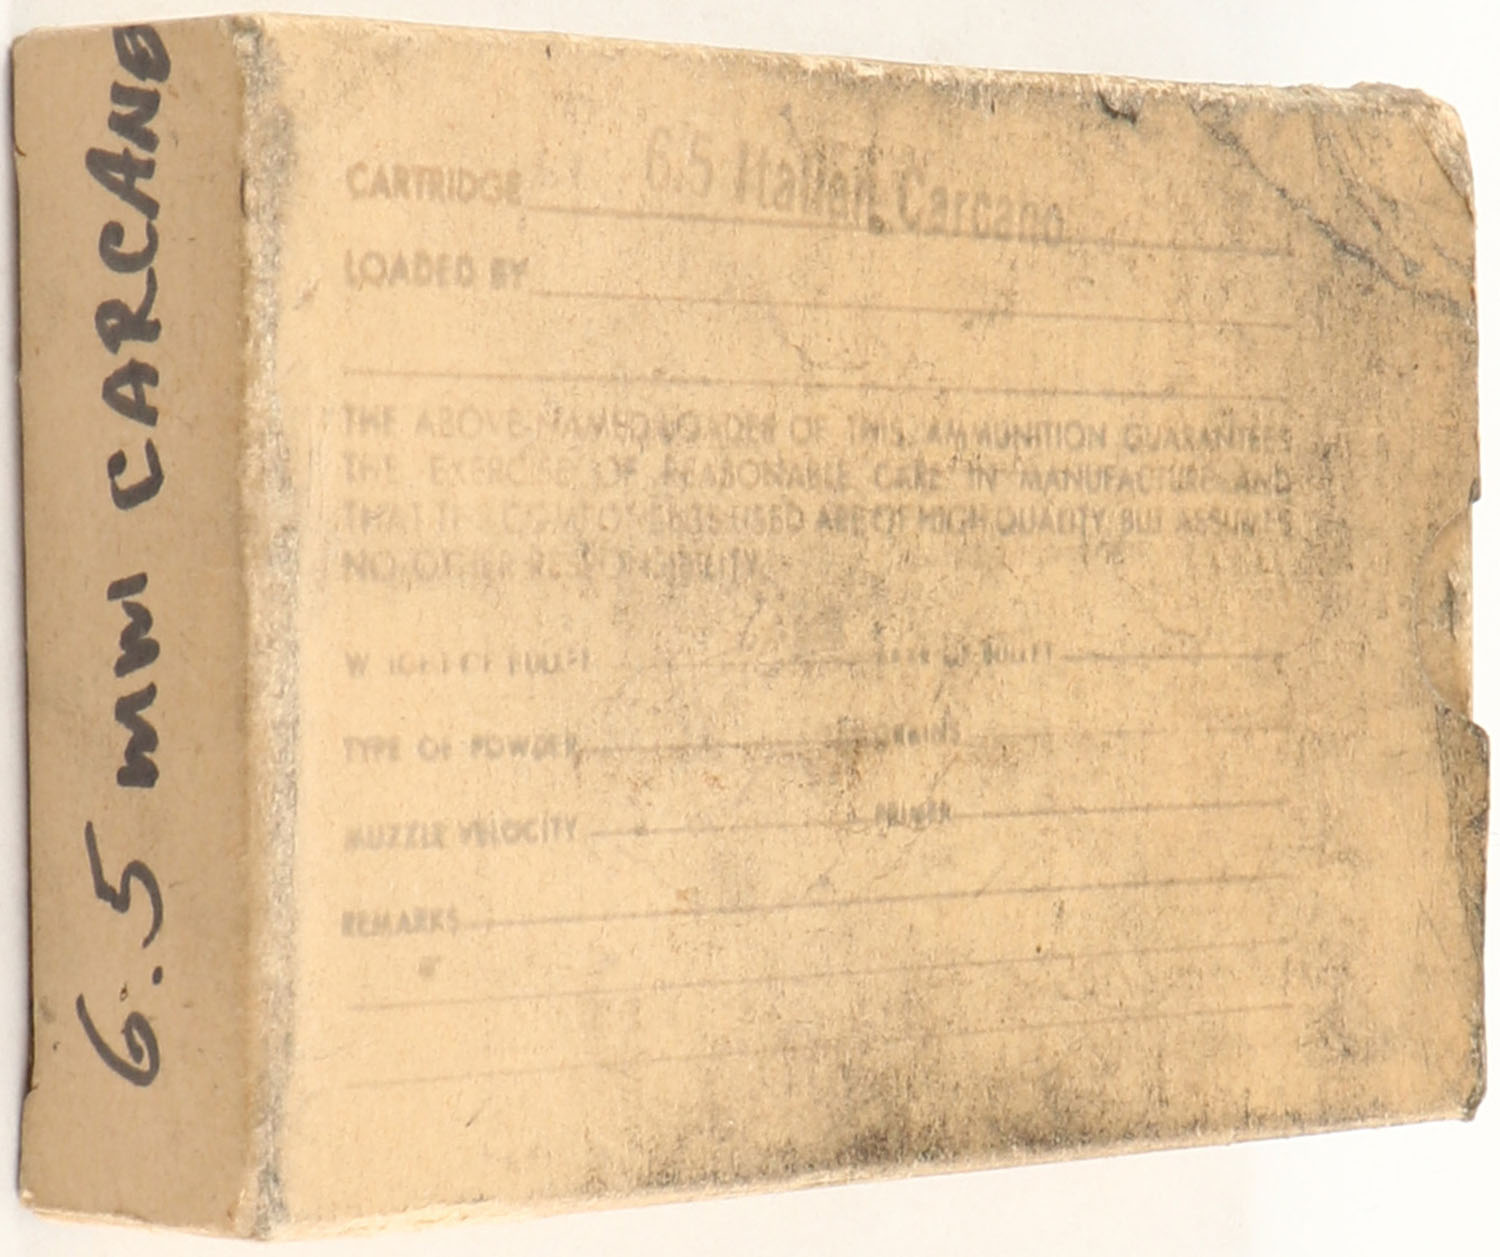 6.5 mm CARCANO
CARTRIDGE 6.5 Italian Carcano
LOADED BY
THE ABOVE NAMED LOADER OF THIS AMMUNITION GUARANTEES
THE EXERCISE OF REASONABLE CARE IN MANUFACTURE AND
THAT THE COMPONENTS USED ARE OF HIGH QUALITY BUT ASSUMES
NO OTHER RESPONSIBILITY.
WEIGHT OF BULLET MAKE OF BULLET
TYPE OF POWDER GRAINS
MUZZLE VELOCITY PRIMER
REMARKS